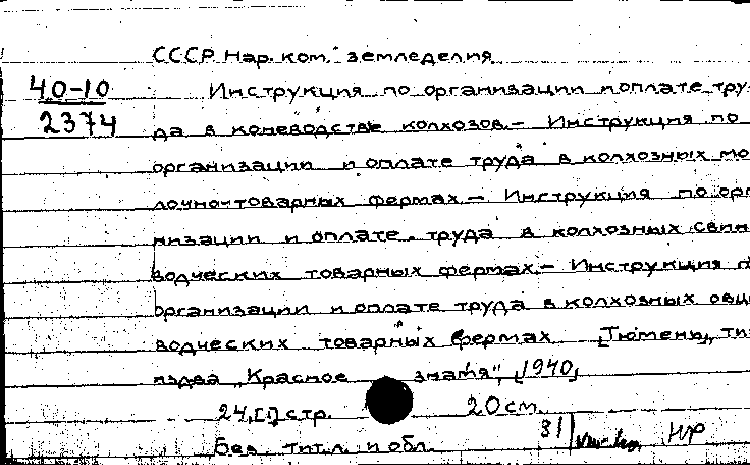 СССР. Нар. ком. земледелия
40-10
2374
Инструкция по организации и оплате тру-
да в коневодстве колхозов.- Инструкция по
организации и оплате труда в колхозных мо
лочнотоварных фермах.- Инструкция по орг
низации и оплате труда в колхозных свин
водческих товарных фермах.- Инструкция п
организации и оплате труда в колхозных овц
водческих товарных фермах [Тюмень, ти
издва „Красное знамя", [1940]
24,[1] стр. 20 см.
Без тит.л. и обл. 31 НР